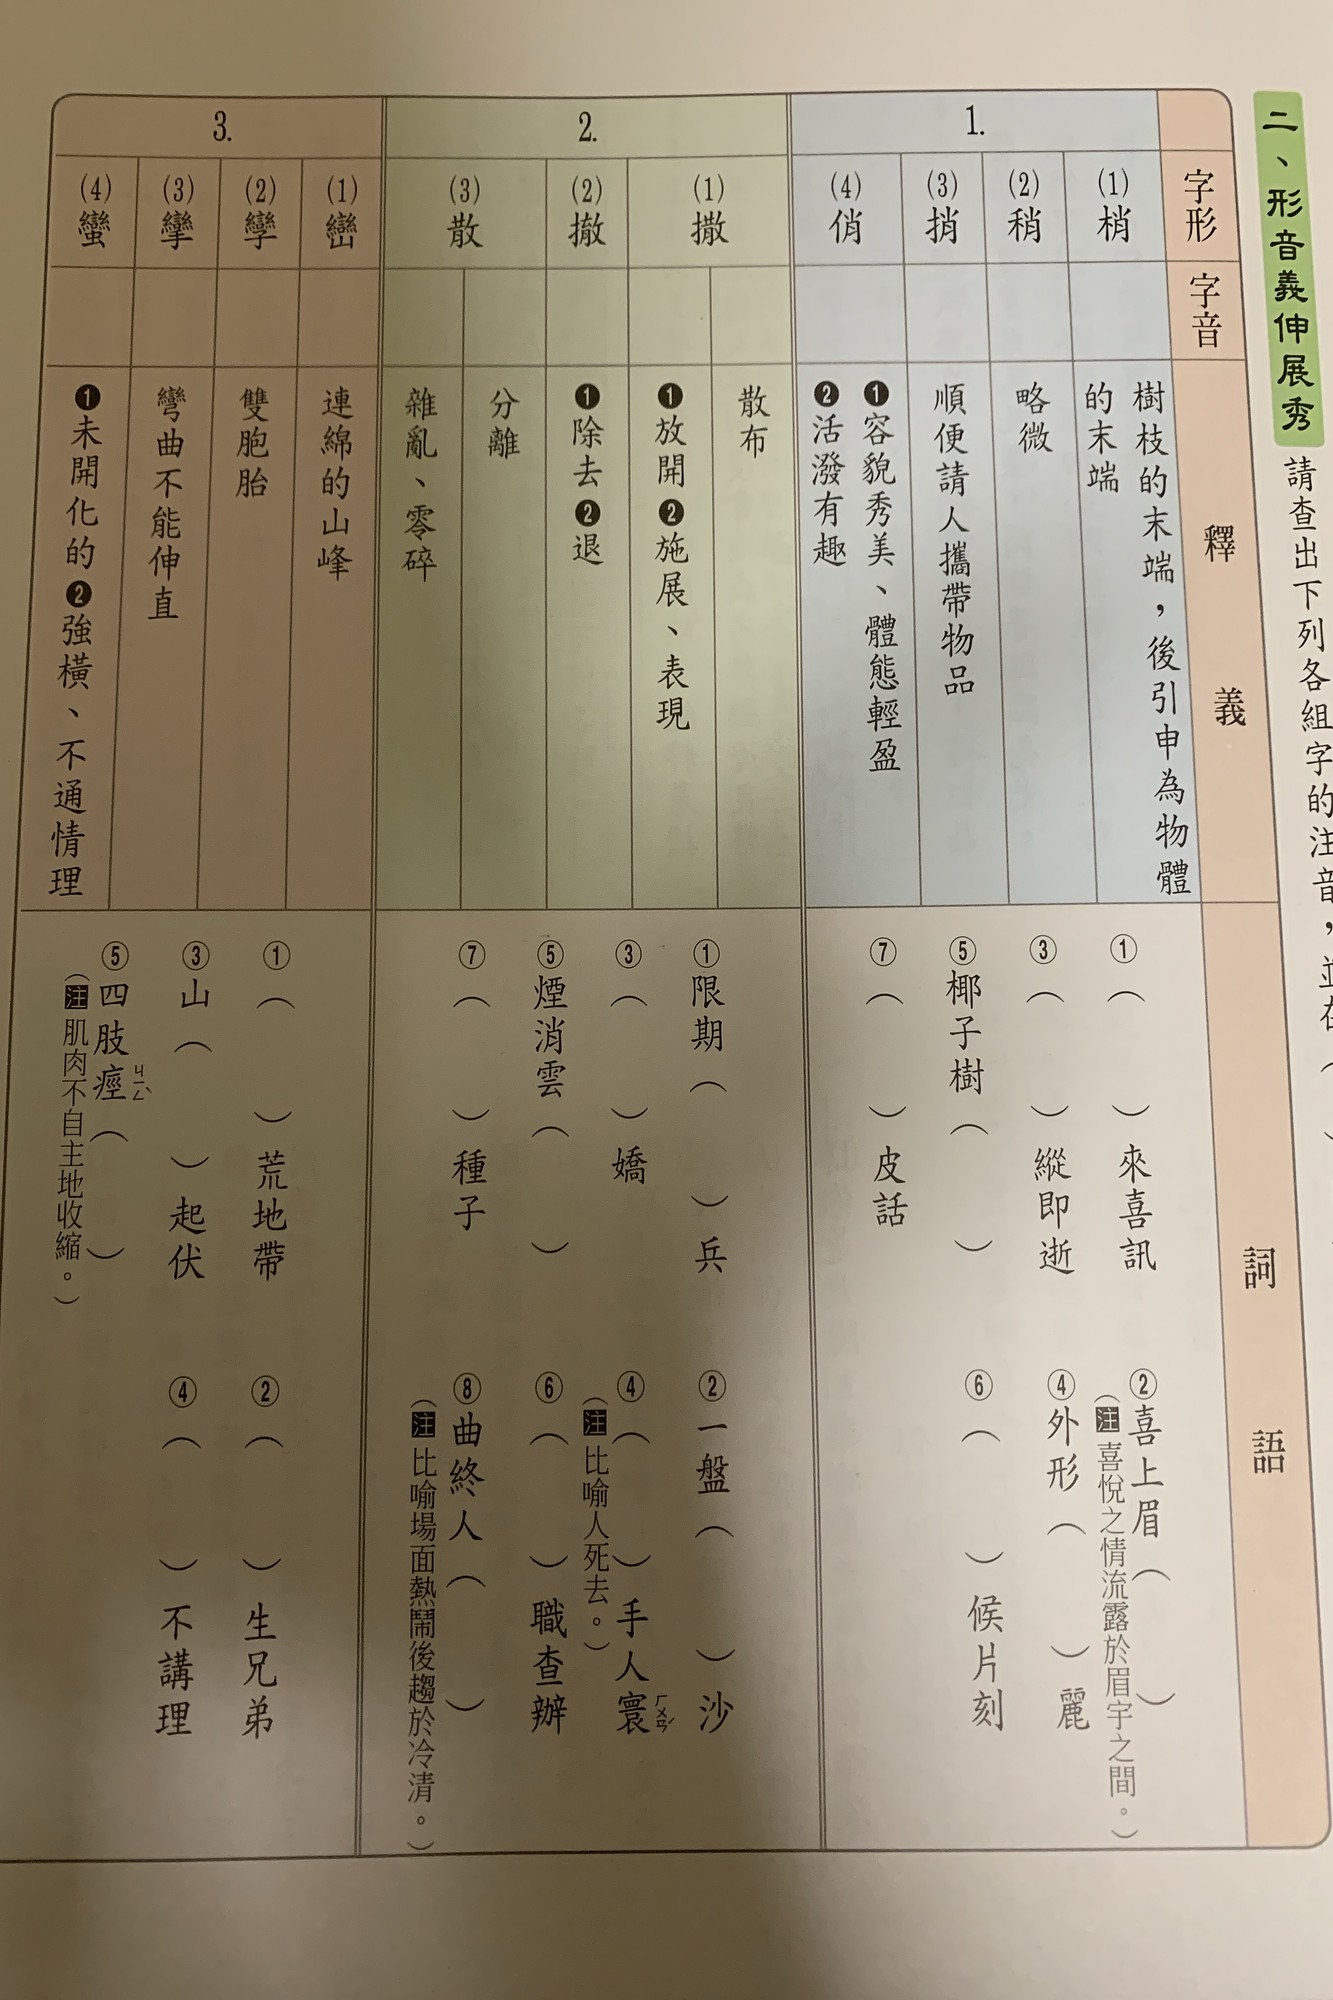 二、形音義伸展秀
請查出下列各組字的注音，並在（
字形
字音
釋義
詞語
1.
(1)梢
樹枝的末端，後引申為物體
的末端
(2)稍
略微
(3)捎
順便請人攜帶物品
(4)俏
❶容貌秀美、體態輕盈
❷活潑有趣
①（　　）來喜訊
②喜上眉（　　）
（注喜悅之情流露於眉宇之間。）
③（　　）縱即逝
④外形（　　）麗
⑤椰子樹（　　）
⑥（　　）候片刻
⑦（　　）皮話
2.
(1)撒
散布
❶放開❷施展、表現
(2)撤
❶除去❷退
(3)散
分離
雜亂、零碎
①限期（　　）兵
②一盤（　　）沙
③（　　）嬌
④（　　）手人寰ㄏㄨㄢˊ
（注比喻人死去。）
⑤煙消雲（　　）
⑥（　　）職查辦
⑦（　　）種子
⑧曲終人（　　）
（注比喻場面熱鬧後趨於冷清。）
3.
(1)巒
連綿的山峰
(2)孿
雙胞胎
(3)攣
彎曲不能伸直
(4)蠻
❶未開化的❷強橫、不通情理
①（　　）荒地帶
②（　　）生兄弟
③山（　　）起伏
④（　　）不講理
⑤四肢痙ㄐㄧㄥˋ（　　）
（注肌肉不自主地收縮。）